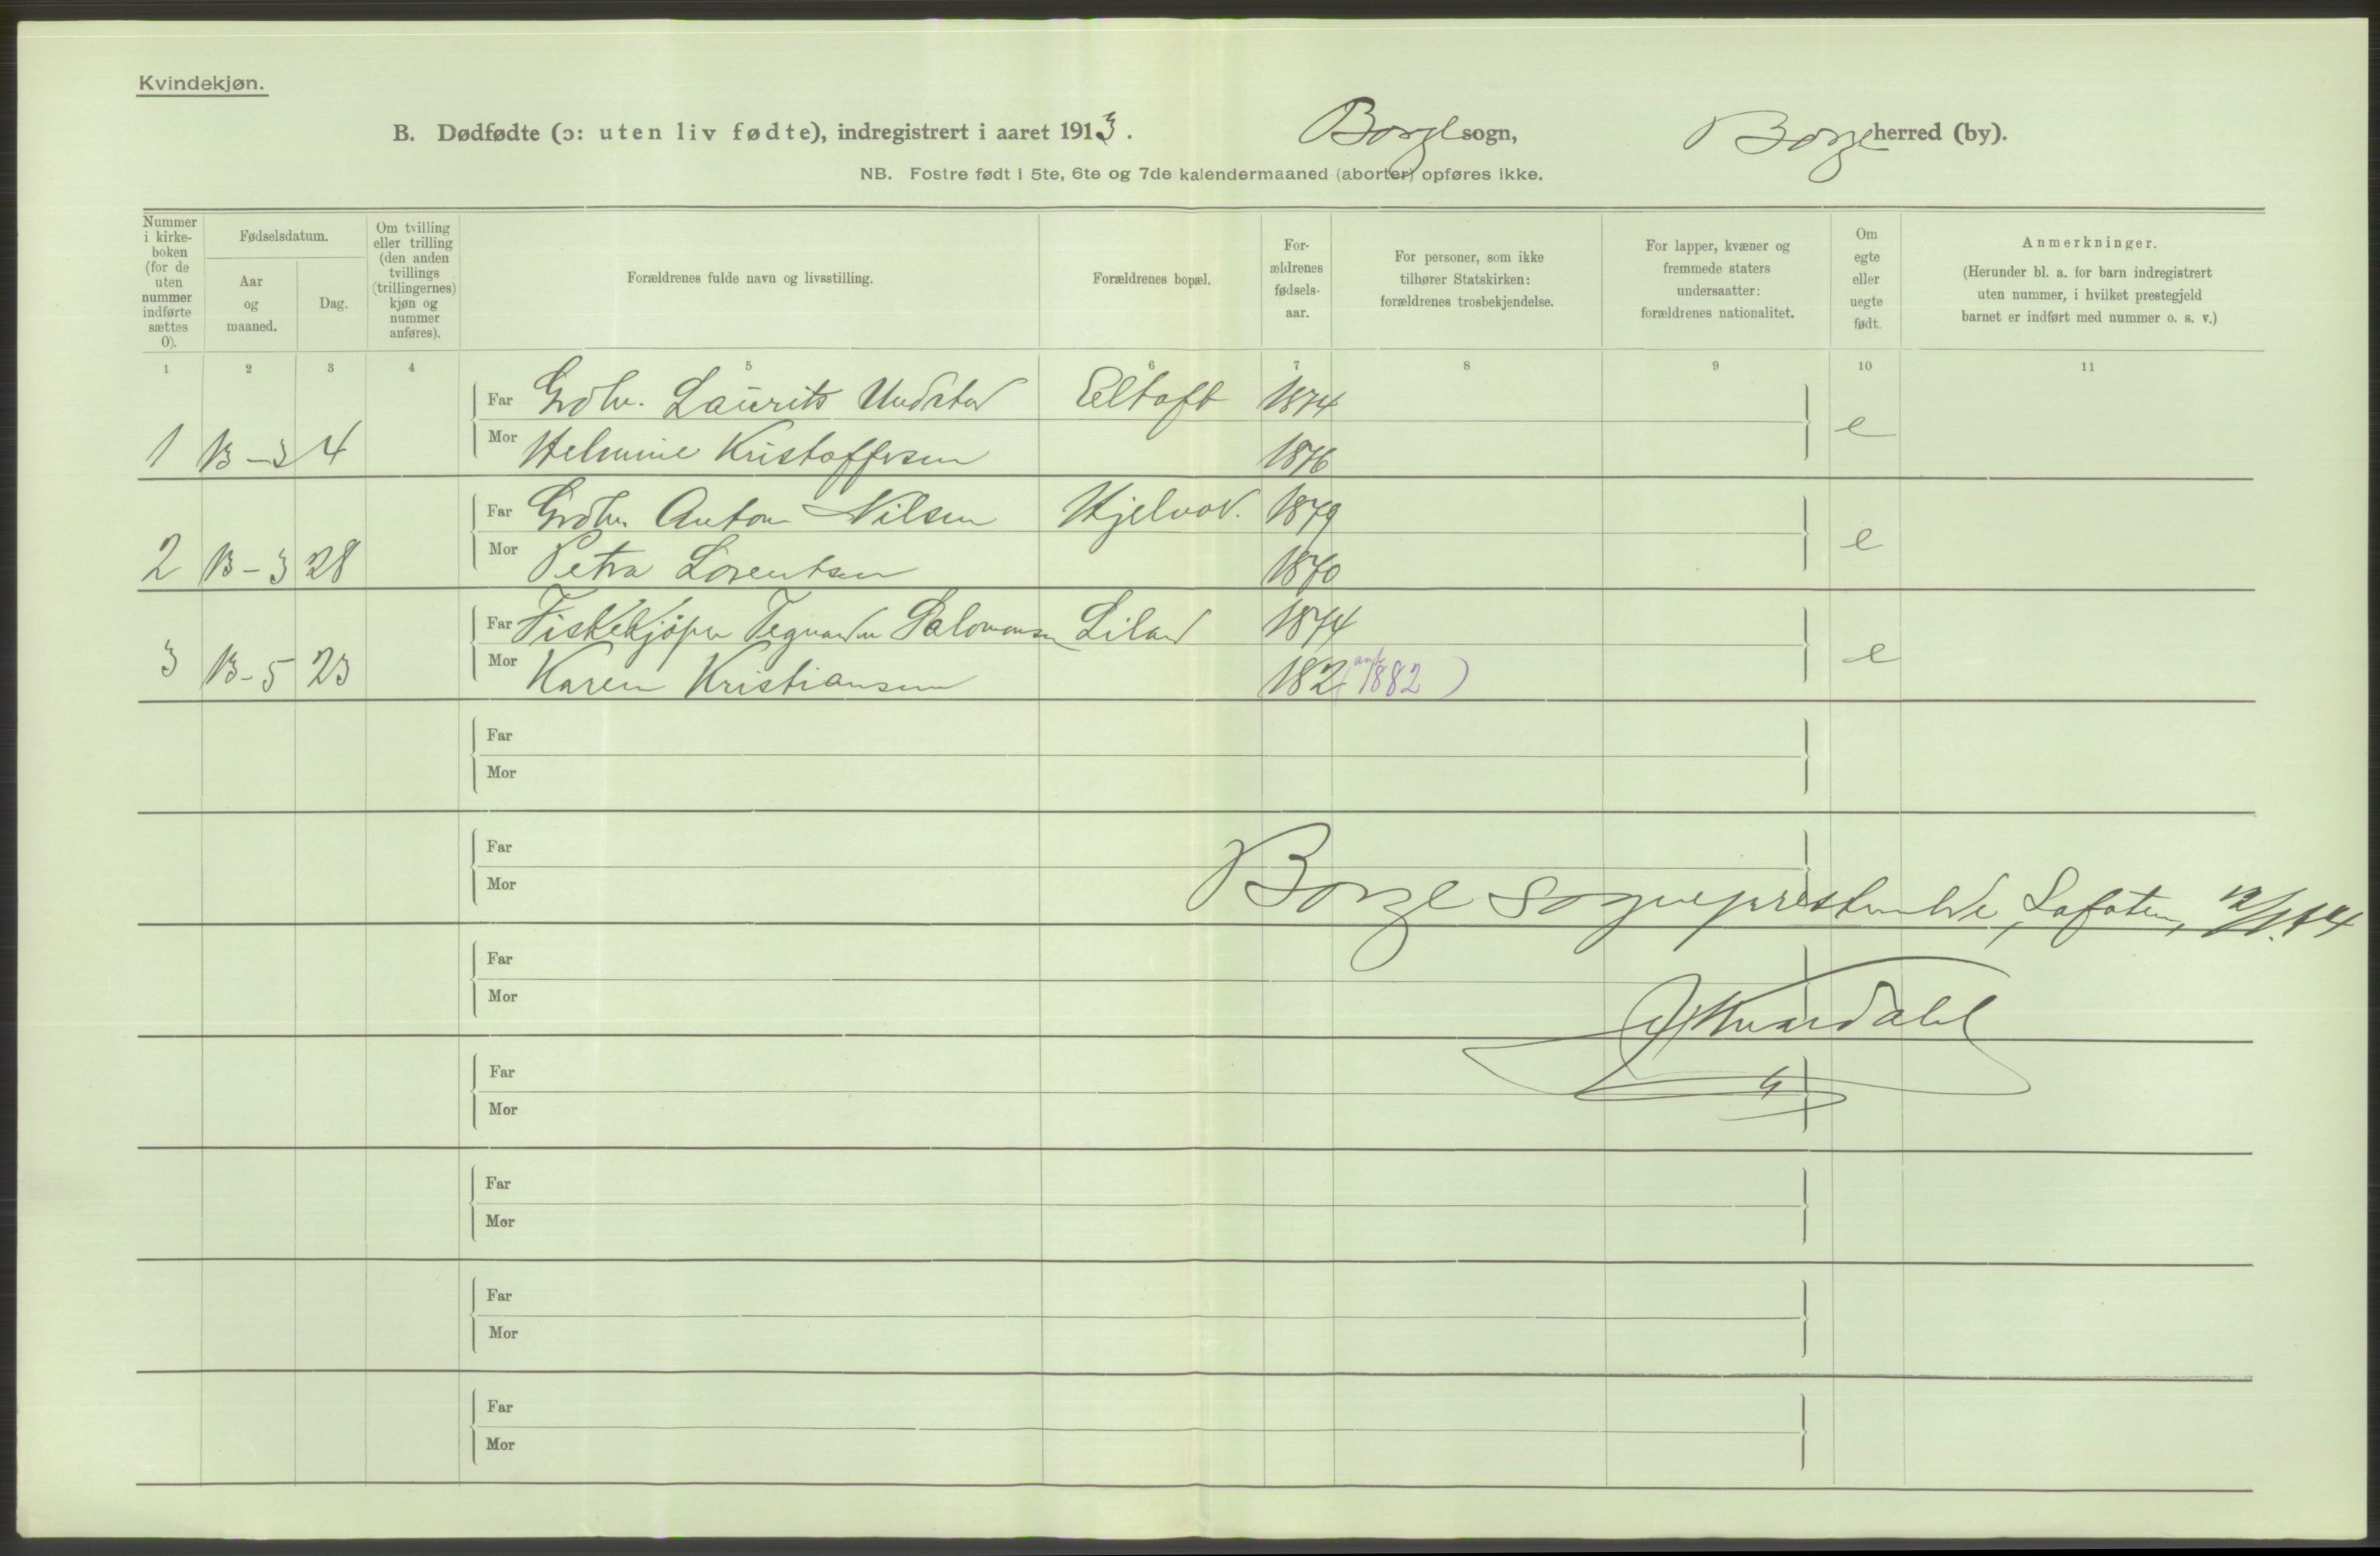 Kvindekjøn.
B. Dødfødte (ɔ: uten liv fødte), indregistrert i aaret 1913. Borge sogn, Borge herred (by).
NB. Fostre født i 5te, 6te og 7de kalendermaaned (aborter) opføres ikke.
Nummer i kirke-boken (for de uten nummer indførte sættes 0).
Fødselsdatum.
Aar og maaned.
Dag.
Om tvilling eller trilling (den anden tvillings (trillingernes) kjøn og nummer anføres).
Forældrenes fulde navn og livsstilling.
Forældrenes bopæl.
For-ældrenes fødsels-aar.
For personer, som ikke tilhører Statskirken: forældrenes trosbekjendelse.
For lapper, kvæner og fremmede staters undersaatter: forældrenes nationalitet.
Om egte eller uegte født.
Anmerkninger.
(Herunder bl. a. for barn indregistrert uten nummer, i hvilket prestegjeld barnet er indført med nummer o. s. v.)
1 2 3 4 5 6 7 8 9 10 11
Far Grdbr. Laurits Undstad Eltoft 1874
1 13-3 4 Mor Helmine Kristoffersen 1876 e
Far Grdbr. Anton Nilsen Kjelvod. 1879
2 13-3 28 Mor Petra Lorentsen 1870 e
Far Fiskekjøper Tegnander Salomonsen Liland 1874
3 13-5 23 Mor Karen Kristiansen 182 (ant 1882) e
Far
Mor
Far
Mor
Borge sogneprestembede, Lofoten, 12/1.14
Far
Mor
Far
Mor
Far
Mor
Far
Mor
Far
Mor